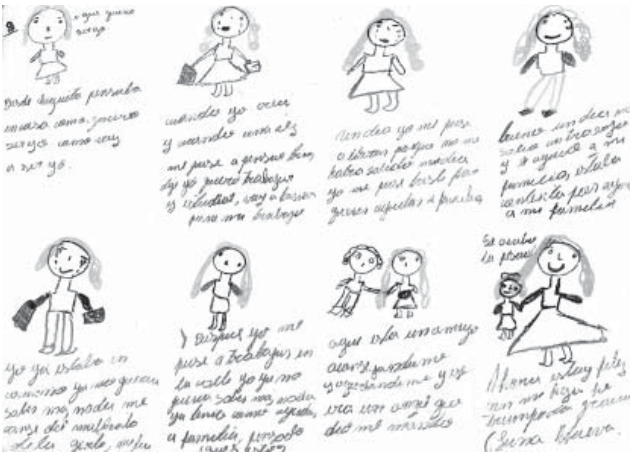 que quiero
ser yo
Desde chiquita pensaba
en cosa como quiero
ser yo como voy
a ser yo.
cuando yo crecí
y cuando una vez
me puse a pensar bien
dije yo quiero trabajar
y estudiar, voy a buscar
para mi trabajo
Un dia yo me puse
a llorar porque no me
había salido nada
yo me puse triste por
querer ayudar a familia
bueno un dia me
salio un trabajo
y a mi
familia, estaba
contenta por
a mi familia
yo ya estaba en
camino ya no quería
saber mas nada me
canse del
de la gente,
Despues yo me
puse a trabajar en
la calle yo ya no
quería saber mas nada
ya tenía como ayudar
a familia, pensado
aqui esta un amigo
aconsejandome
y ayudandome y ese
era un angel que
dio me mando
Se acabó
la
Ahora estoy feliz
con mi hija he
triunfado gracias
(Luna Nueva.